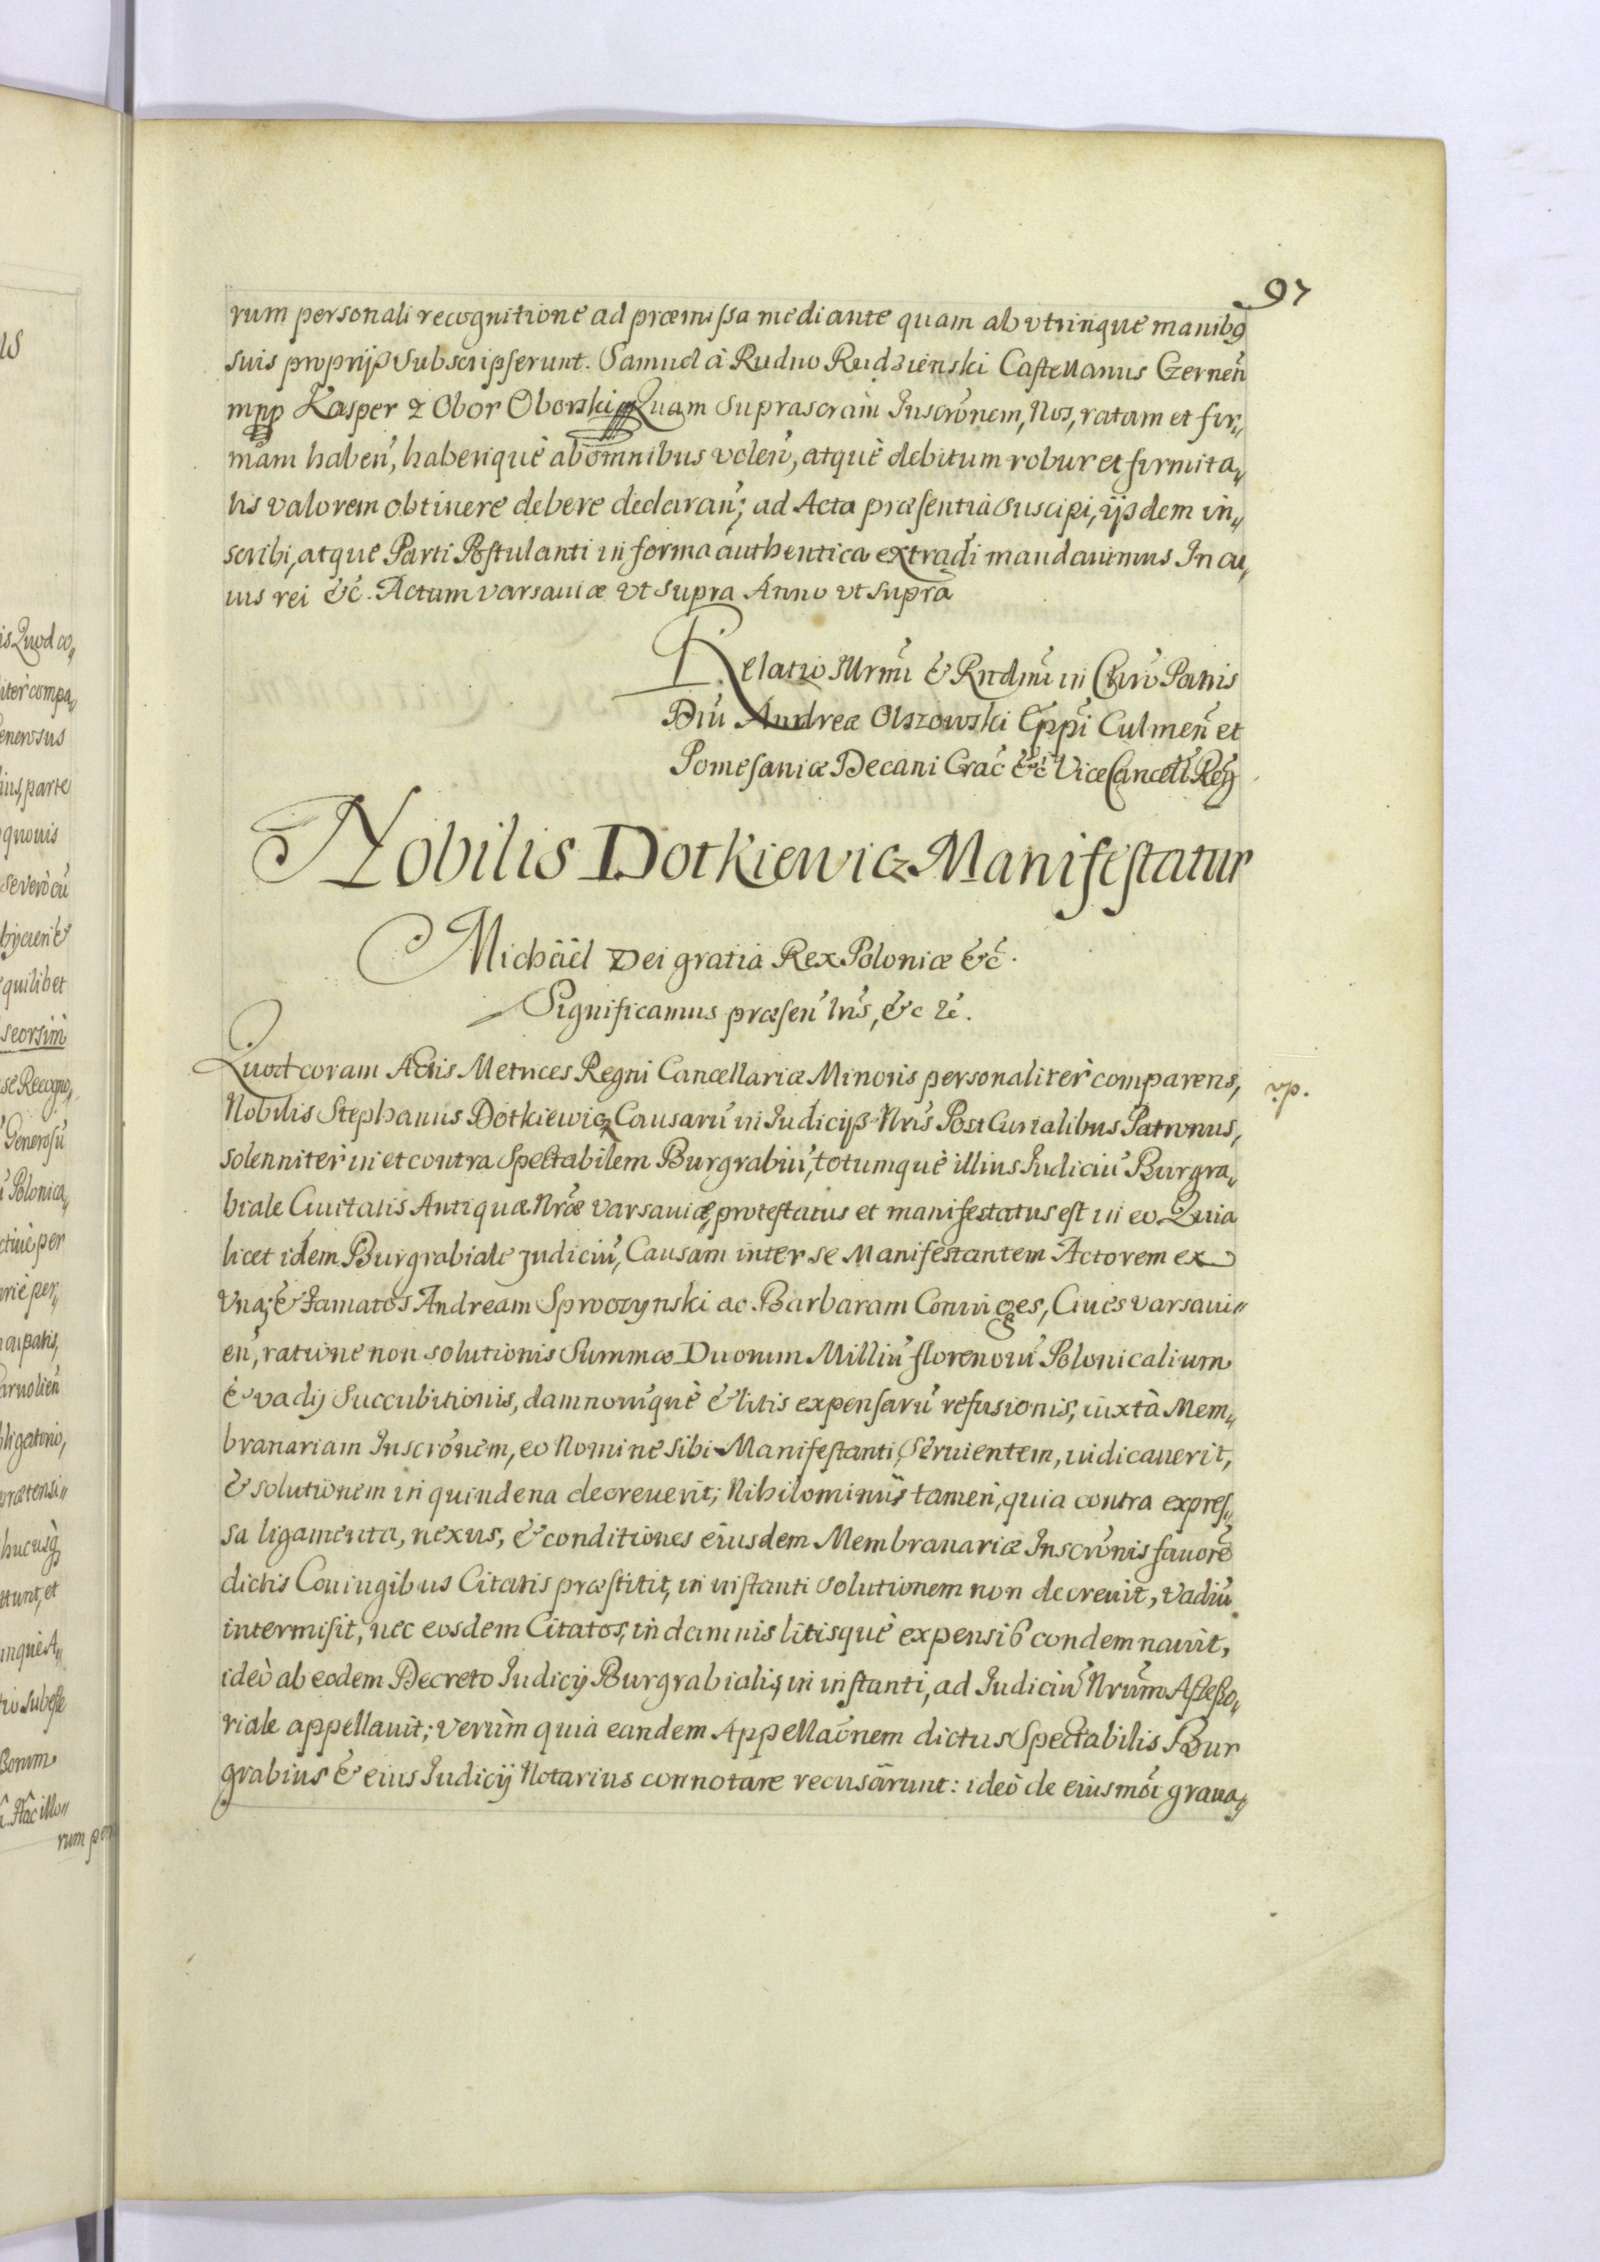 97
rum personali recognitione ad præmissa mediante quam ab vtrinque manibq
suis proprijs subscripserunt. Samuel à Rudno Rudzienski Castellanus Czerneñ
mpp Kasper z Obor Oborski mpp Quam suprascram̃ Inscrõnem, Nos, ratam et fir„
mam habeñ, haberiquè ab omnibus voleñ, atquè debitum robur et firmita„
tis valorem obtinere debere declarañ; ad Acta præsentia suscipi, ijsdem in„
scribi, atque Parti Postulanti in forma authentica extradi mandauimus In cu„
ius rei &c. Actum varsauiæ vt supra Anno vt supra
Relatio Illrmĩ & Rndmĩ in Chrõ Patris
Dñi Andreæ Olszowski Eppĩ Culmeñ et
Pomesaniæ Decani Crac̃ &c̃ ViceCancell Regñ
Nobilis Dotkiewicz Manifestatur
Michäel Dei gratia Rex Poloniæ &c̃.
Significamus præseñ lrĩs, &c &c.
Quod coram Actis Metrices Regni Cancellariæ Minoris personaliter comparens,
vp.
Nobilis Stephanus Dotkiewicz Causarũ in Iudicijs Nrĩs Post Curialibus Patronus,
solenniter in et contra Spectabilem Burgrabiũ, totumquè illius Iudiciũ Burgra„
biale Ciuitatis Antiquæ Nrǽ varsauiæ, protestatus et manifestatus est in eo. Quia
licet idem Burgrabiale judiciũ, Causam inter se Manifestantem Actorem ex
Vna; & Famatos Andream Sproczynski ac Barbaram Coniuges, Ciues varsaui„
eñ, ratione non solutionis Summæ Duorum Milliũ florenorũ Polonicalium
& vadij succubitionis, damnorũquè & litis expensarũ refusionis, iuxtà Mem„
branariam Inscrõnem, eo Nomine sibi Manifestanti seruientem, iudicauerit,
& solutionem in quindena decreuerit; Nihilominùs tamen, quia contra expres„
sa ligamenta, nexus, & conditiones eiusdem Membranariæ Inscrõnis fauorẽ
dictis Coniugibus Citatis præstitit, in instanti solutionem non decreuit, Vadiũ
intermisit, nec eosdem Citatos, in damnis litisquè expensis condemnauit,
ideò ab eodem Decreto Iudicij Burgrabialis, in instanti, ad Iudiciũ Nrũm Assesso„
riale appellauit; verùm quia eandem Appellaõnem dictus Spectabilis Bur
grabius & eius Iudicij Notarius connotare recusârunt: ideò de eiusmõi graua„